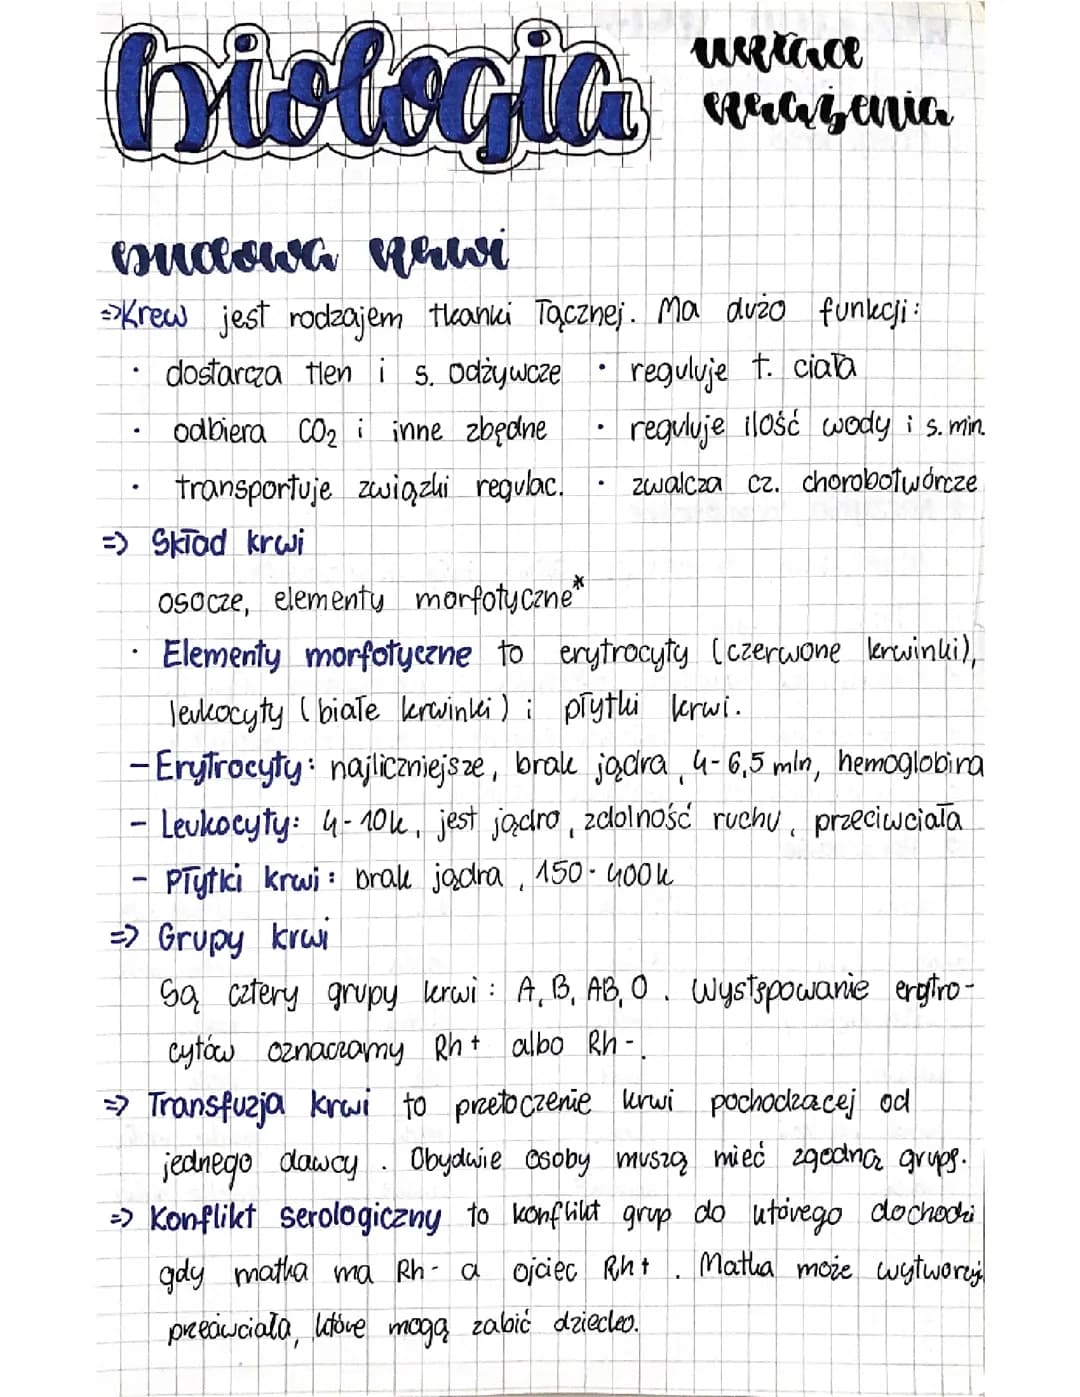 biologia
układ
krążenia
budowa krwi
=>Krew jest rodzajem tkanki łącznej. Ma dużo funkcji:
· dostarcza tlen i s. odżywcze · reguluje t. ciała
· odbiera CO₂ i inne zbędne · reguluje ilość wody i s. min.
· transportuje związki regulac. · zwalcza cz. chorobotwórcze
=> Skład krwi
osocze, elementy morfotyczne*
· Elementy morfotyczne to erytrocyty (czerwone krwinki),
leukocyty (białe krwinki) i płytki krwi.
- Erytrocyty: najliczniejsze, brak jądra, 4-6,5 mln, hemoglobina
- Leukocyty: 4-10k, jest jądro, zdolność ruchu, przeciwciała
- Płytki krwi: brak jądra, 150-400k
=> Grupy krwi
Są cztery grupy krwi: A, B, AB, 0. Występowanie erytro-
cytów oznaczamy Rh+ albo Rh-.
=> Transfuzja krwi to przetoczenie krwi pochodzącej od
jednego dawcy. Obydwie osoby muszą mieć zgodną grupę.
=> Konflikt serologiczny to konflikt grup do którego dochodzi
gdy matka ma Rh- a ojciec Rh+. Matka może wytworzyć
przeciwciała, które mogą zabić dziecko.